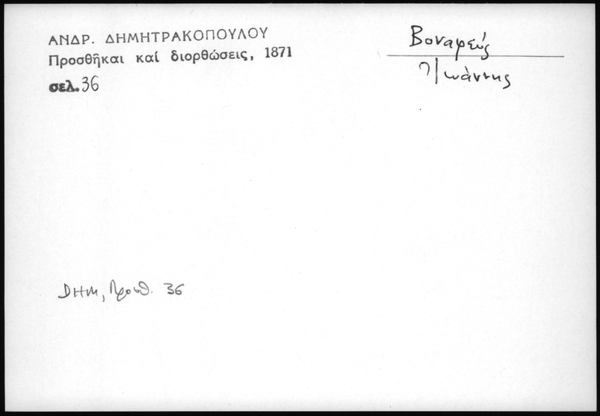 ΑΝΔΡ. ΔΗΜΗΤΡΑΚΟΠΟΥΛΟΥ
Προσθῆκαι καί διορθώσεις, 1871
σελ. 36
Βοναφεύς
Ἰωάννης
ΔΗΜ, Προσθ. 36